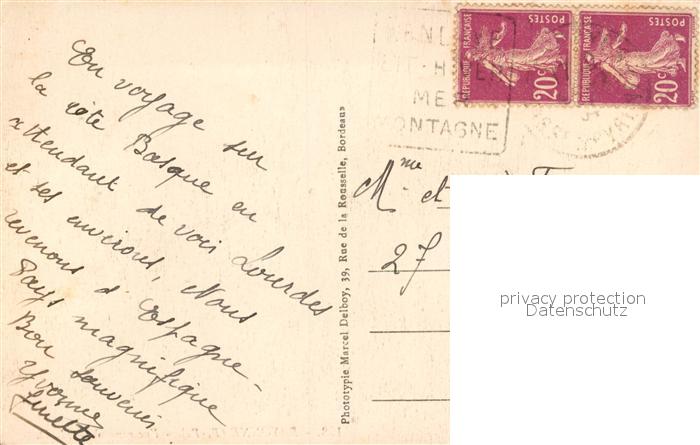 En voyage sur
la côte Basque en
attendant de voir Lourdes
et ses environs, Nous
revenons d'Espagne -
Pays magnifique
Bon souvenir
Yvonne
Phototypie Marcel Delboy, 39, Rue de la Rousselle, Bordeaux
POSTES
REPUBLIQUE FRANÇAISE
20c
POSTES
REPUBLIQUE FRANÇAISE
20c
MER
MONTAGNE
Mme et
27
privacy protection
Datenschutz